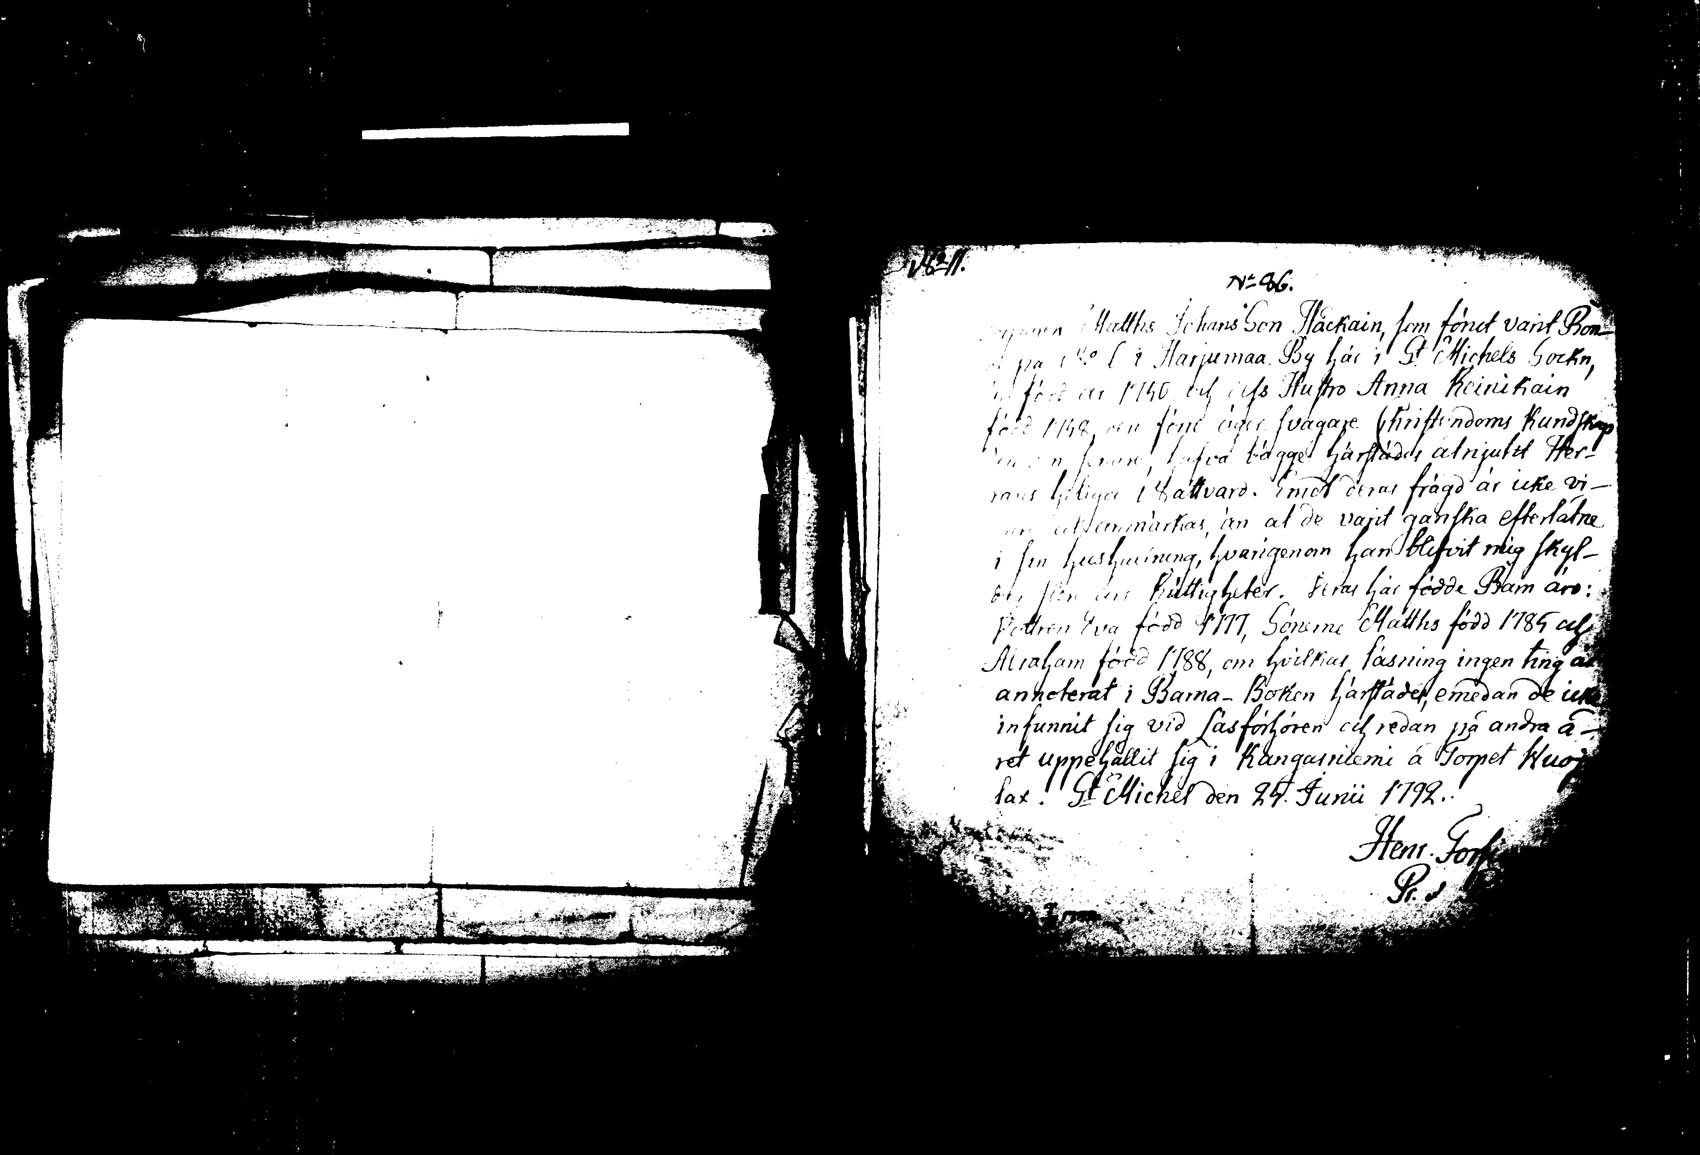 No 11.
No 86.
Matths Johans Son Häckäin, som förut varit Bon-
på No 1 i Harjumaa By här i St Michels Sockn,
född år 1740 och dess Hustro Anna Reinikain
född 1748, den förre äger svagare Christendoms Kundskap
än den senare, hafva bägge härstädes åtnjutit Her-
rans heliga Nattvard. Emot deras frägd är icke vi-
anmärkas, än at de varit ganska efterlåtne
i sin hushållning, hvarigenom han blifvit mig skyl-
Rättigheter. Deras här födde Barn äro:
Dottren Eva född 1777, Sönerne Matths född 1785 och
Abraham född 1788, om hvilkas läsning ingen ting är
annoterat i Barna-Boken härstädes, emedan de icke
infunnit sig vid Läsförhören och redan på andra å-
ret uppehållit sig i Kangasniemi å Torpet
lax. St Michel den 25. Junii 1792.
Henr.